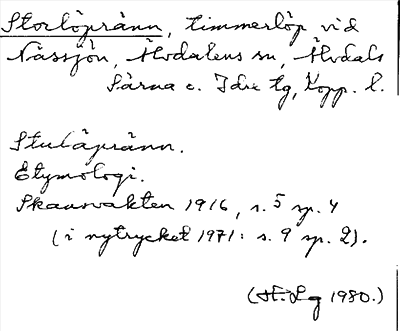 Storlöpränn, timmerlöp vid
Nässjön, Älvdalens sn, Älvdals
Särna o. Idre tg, Kopp. l.
Stulöpränn.
Etymologi.
Skansvakten 1916, s. 5 sp. 4
(i nytrycket 1971: s. 9 sp. 2).
(H. Lg 1980.)